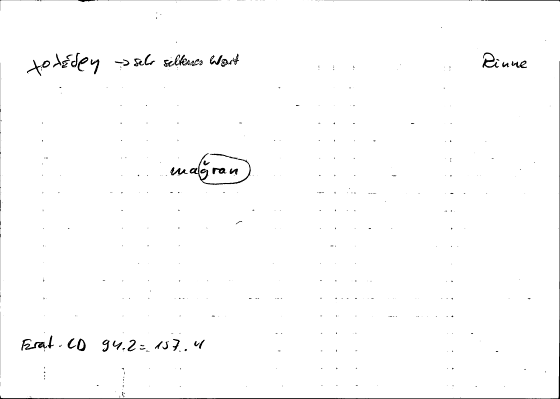 χολέδρη → sehr seltenes Wort Rinne
maǧran
Erat. CD 94.2 = 157.4